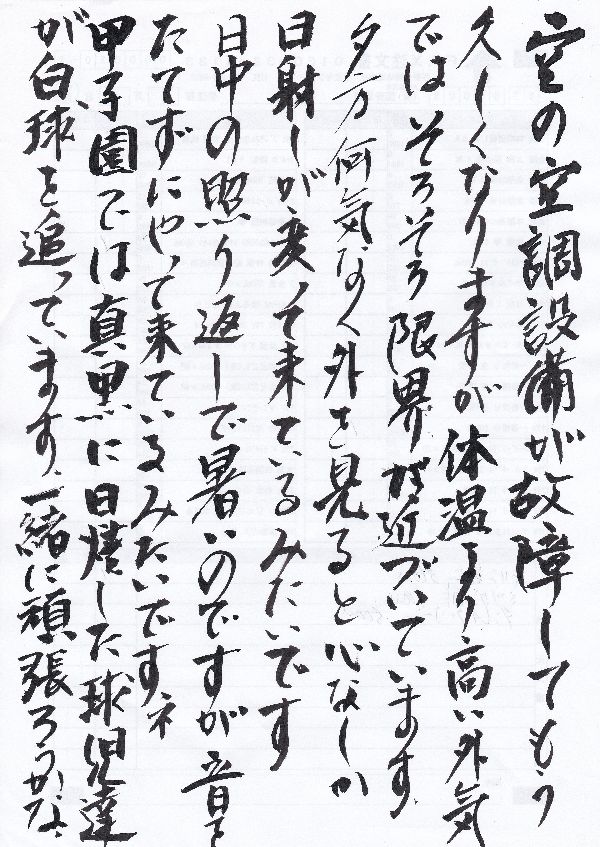 空の空調設備が故障してもう
久しくなりますが体温より高い外気
ではそろそろ限界が近づいています
夕方何気なく外を見ると心なしか
日射しが変って来ているみたいです
日中の照り返しで暑いのですが音を
たてずにやって来ているみたいですネ
甲子園では真黒に日焼した球児達
が白球を追っています、一緒に頑張ろうかな、